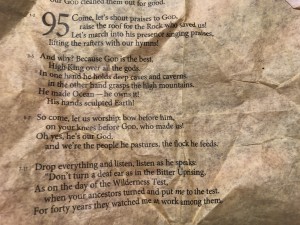 our GOD cleaned them out for good.
95 Come, let's shout praises to GOD,
raise the roof for the Rock who saved us!
Let's march into his presence singing praises,
lifting the rafters with our hymns!
And why? Because GOD is the best,
High King over all the gods.
In one hand he holds deep caves and caverns,
in the other hand grasps the high mountains.
He made Ocean—he owns it!
His hands sculpted Earth!
So come, let us worship: bow before him,
on your knees before GOD, who made us!
Oh yes, he's our God,
and we're the people he pastures, the flock he feeds.
Drop everything and listen, listen as he speaks:
"Don't turn a deaf ear as in the Bitter Uprising,
As on the day of the Wilderness Test,
when your ancestors turned and put me to the test.
For forty years they watched me at work among them,